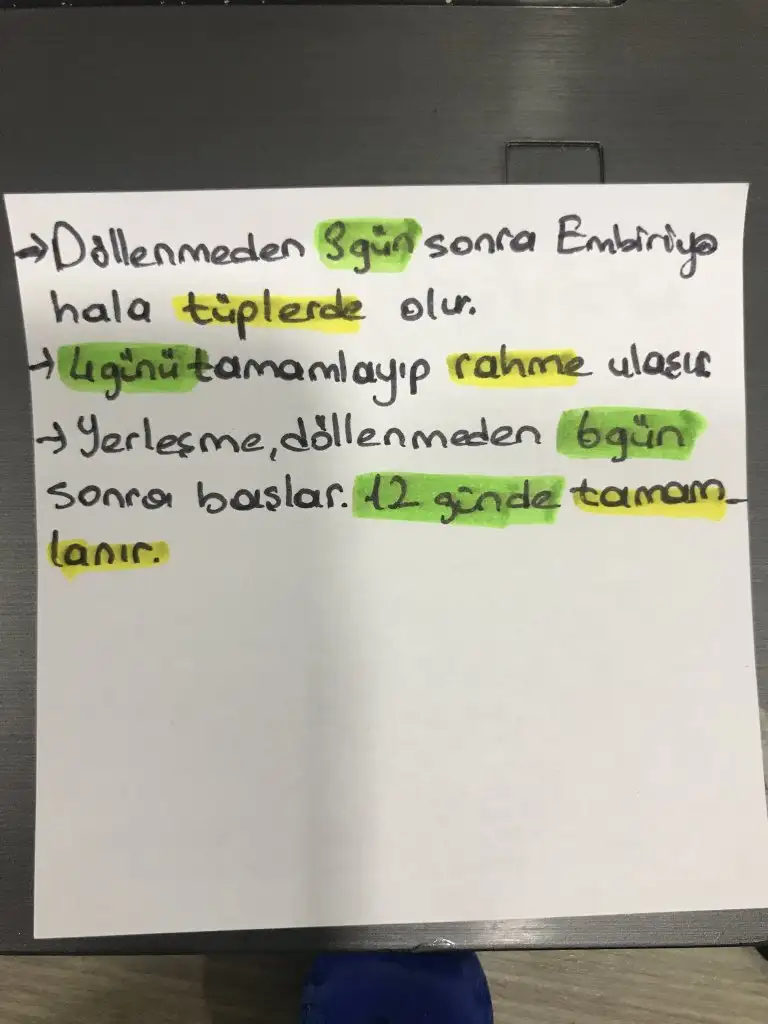 →Döllenmeden 3gün sonra Embiriyo
hala tüplerde olur.
→ 4günü tamamlayıp rahme ulaşır
→ Yerleşme, döllenmeden 6gün
sonra başlar. 12 günde tamam-
lanır.